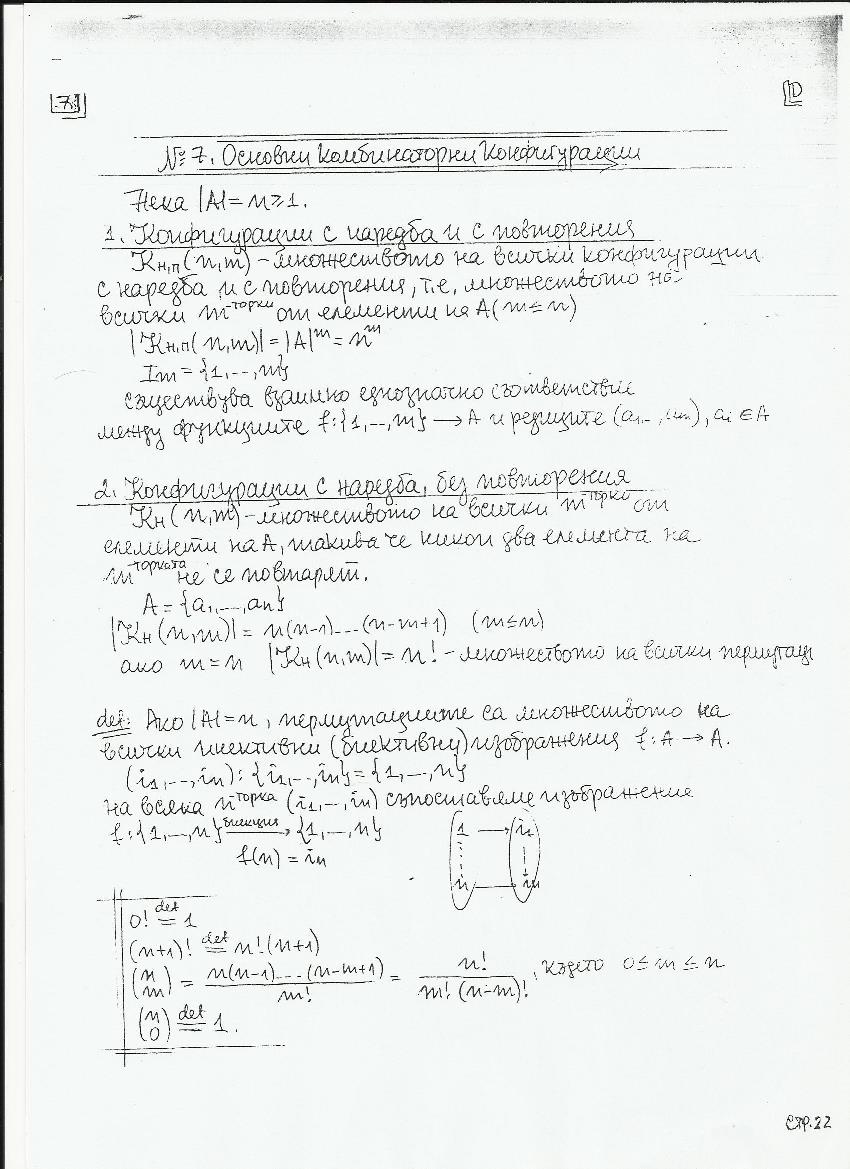 7.
№ 7. Основни комбинаторни конфигурации
Нека |A| = n ≥ 1.
1. Конфигурации с наредба и с повторения
K н,п (n,m) - множеството на всички конфигурации
с наредба и с повторения, т.е. множеството на
всички m торки от елементи на A (m ≤ n)
|K н,п (n,m)| = |A|^m = n^m
Im = {1,..,m}
съществува взаимно еднозначно съответствие
между функциите f: {1,..,m} → A и редиците (a1.. ,am), ai ∈ A
2. Конфигурации с наредба, без повторения
K н (n,m) - множеството на всички m торки от
елементи на A, такива че никои два елемента на
m торката не се повтарят.
A = {a1,...,an}
|K н (n,m)| = n(n-1)....(n-m+1) (m ≤ n)
ако m = n |K н (n,m)| = n! - множеството на всички пермутац
def: Ако |A| = n, пермутациите са множеството на
всички инективни (биективни) изображения f: A → A.
(i1,..,in): {i1,..,in} = {1,..,n}
на всяка n торка (i1,..,in) съпоставяме изображение
f: {1,..,n} биекция → {1,..,n}
f(n) = in
1 → i1
n in
0! def = 1
(n+1)! def = n!(n+1)
(n m) = n(n-1)....(n-m+1) / m! = n! / m! (n-m)! , където 0 ≤ m ≤ n
(n 0) def = 1.
СТР. 22